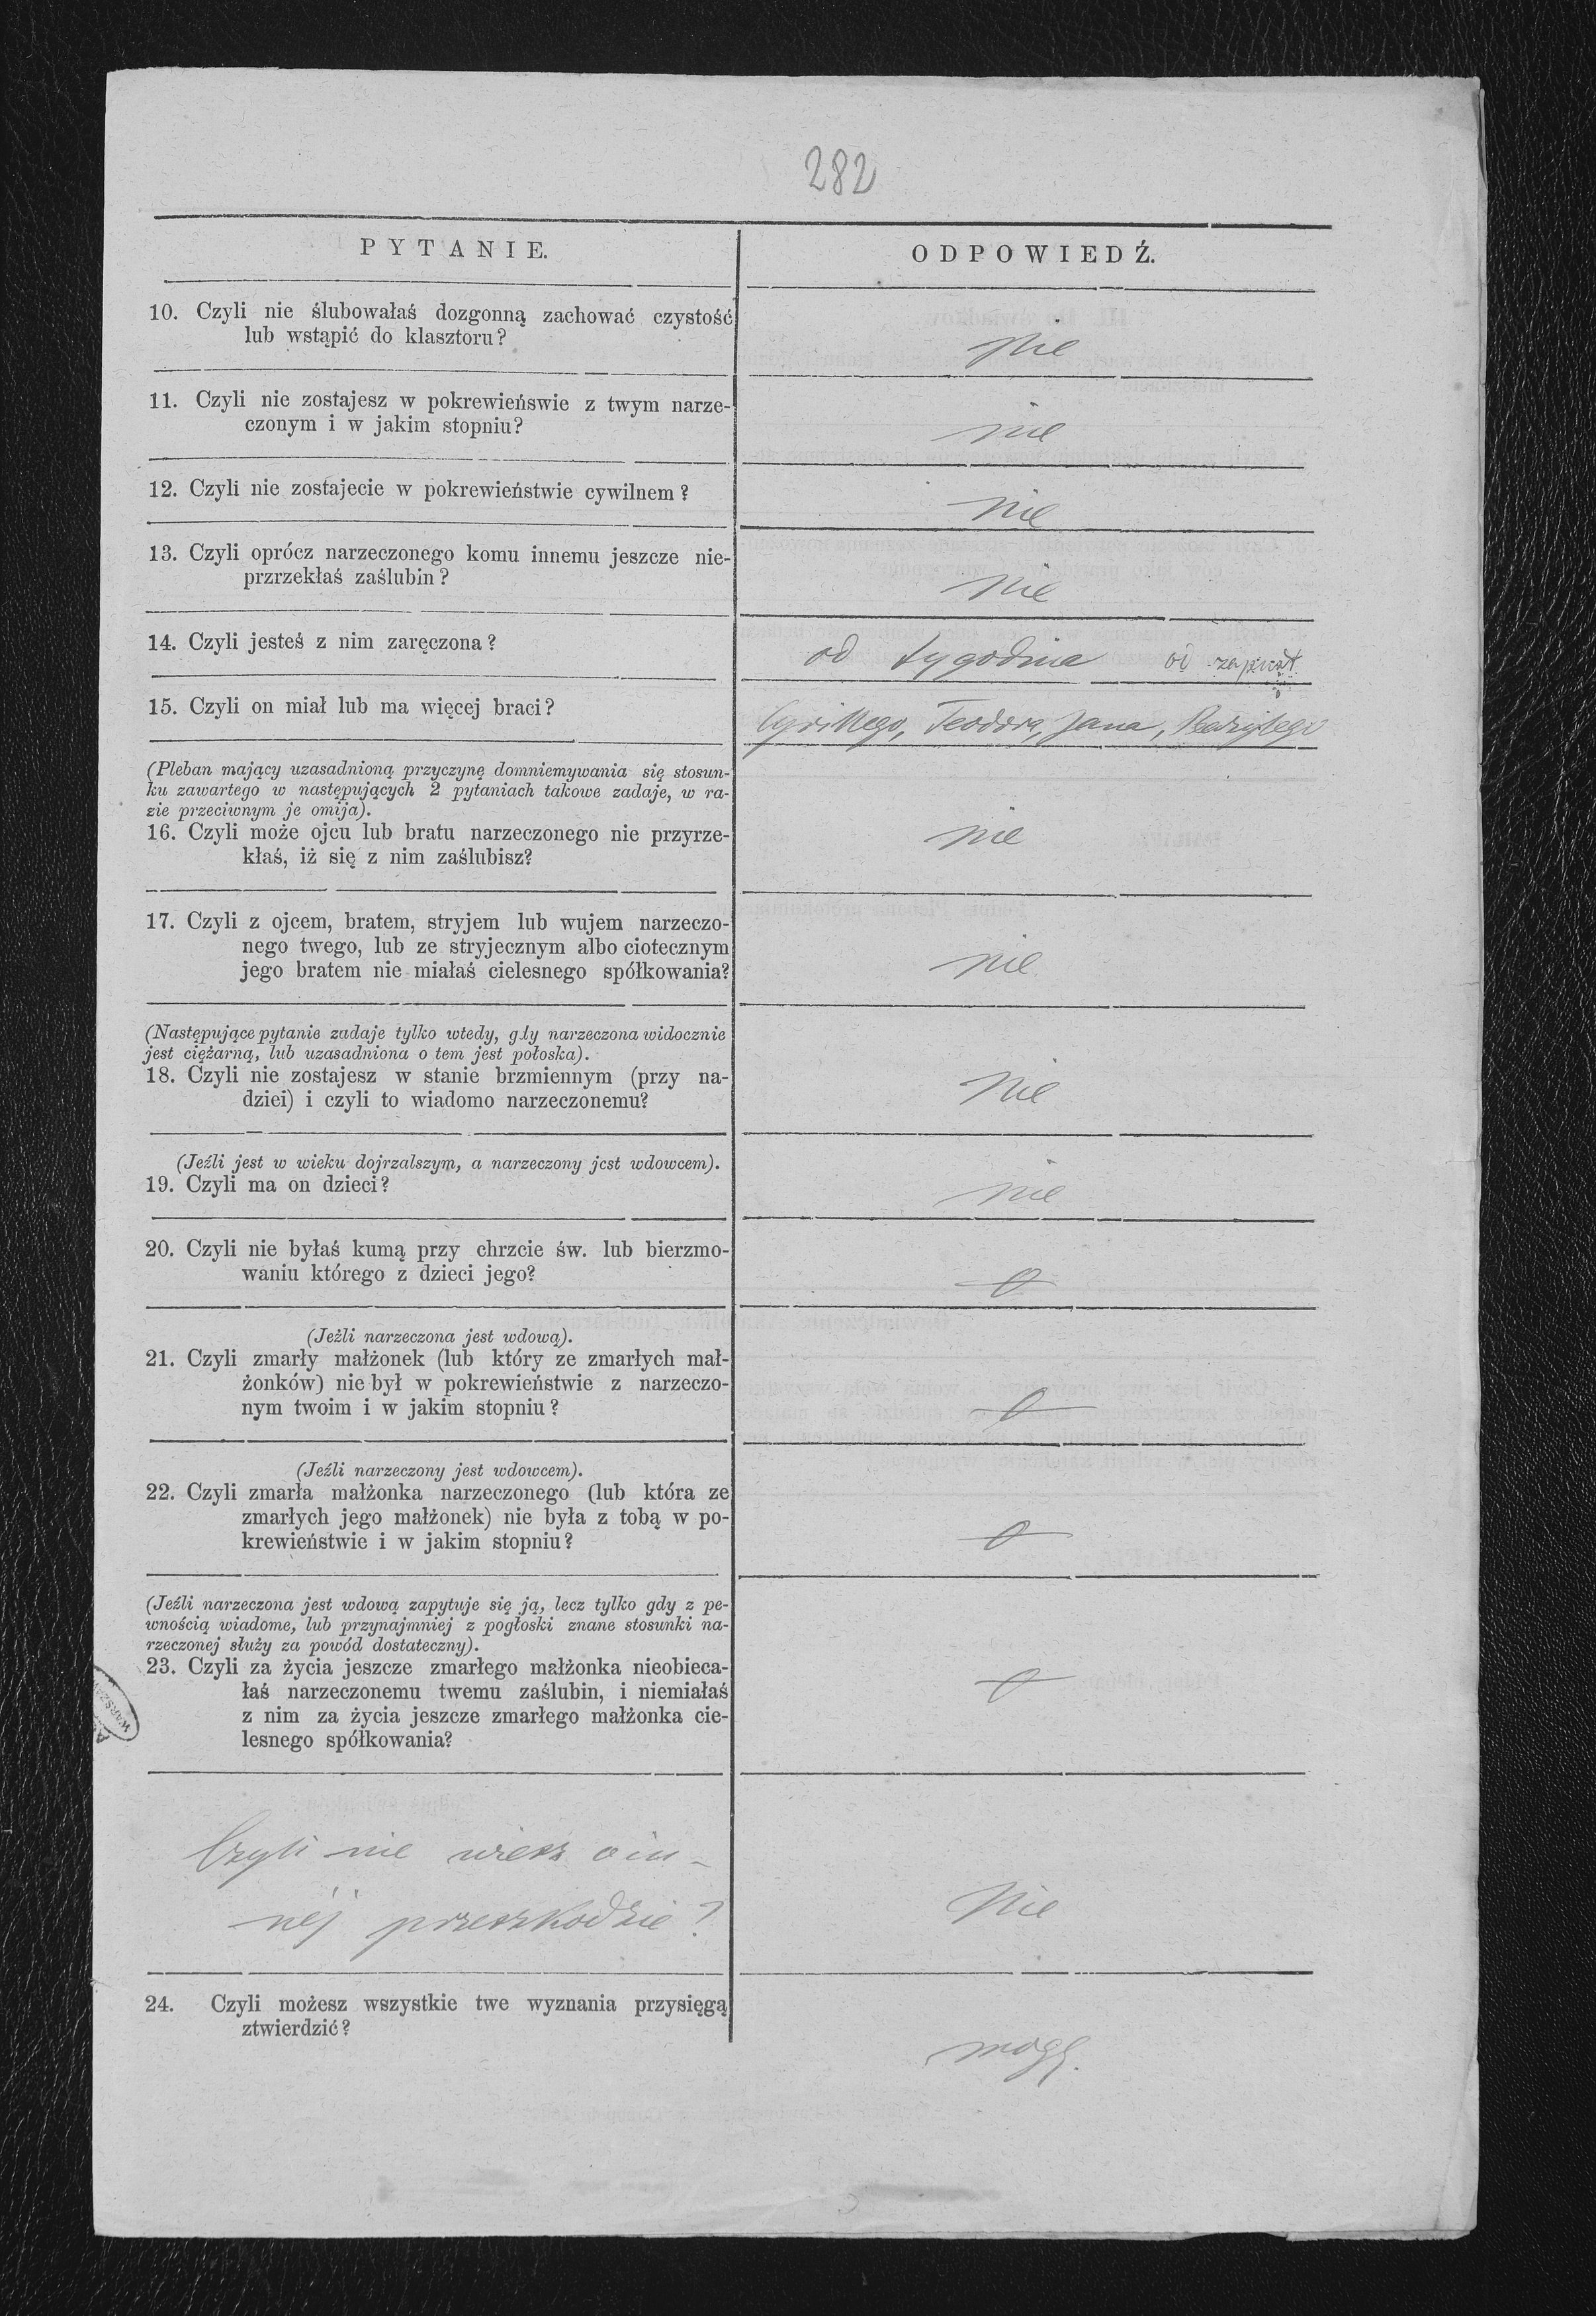 282
PYTANIE.
ODPOWIEDŹ.
10. Czyli nie ślubowałaś dozgonną zachować czystość
lub wstąpić do klasztoru?
nie
11. Czyli nie zostajesz w pokrewieńswie z twym narze-
czonym i w jakim stopniu?
nie
12. Czyli nie zostajecie w pokrewieństwie cywilnem?
nie
13. Czyli oprócz narzeczonego komu innemu jeszcze nie-
przrzekłaś zaślubin?
nie
14. Czyli jesteś z nim zaręczona?
od tygodnia
15. Czyli on miał lub ma więcej braci?
Cyrillego, Teodora, Jana,
(Pleban mający uzasadnioną przyczynę domniemywania się stosun-
ku zawartego w następujących 2 pytaniach takowe zadaje, w ra-
zie przeciwnym je omija).
16. Czyli może ojcu lub bratu narzeczonego nie przyrze-
kłaś, iż się z nim zaślubisz?
nie
17. Czyli z ojcem, bratem, stryjem lub wujem narzeczo-
nego twego, lub ze stryjecznym albo ciotecznym
jego bratem nie miałaś cielesnego spółkowania?
nie
(Następujące pytanie zadaje tylko wtedy, gdy narzeczona widocznie
jest ciężarną, lub uzasadniona o tem jest połoska).
18. Czyli nie zostajesz w stanie brzmiennym (przy na-
dziei) i czyli to wiadomo narzeczonemu?
Nie
(Jeźli jest w wieku dojrzalszym, a narzeczony jest wdowcem).
19. Czyli ma on dzieci?
nie
20. Czyli nie byłaś kumą przy chrzcie św. lub bierzmo-
waniu którego z dzieci jego?
(Jeżli narzeczona jest wdową).
21. Czyli zmarły małżonek (lub który ze zmarłych mał-
żonków) nie był w pokrewieństwie z narzeczo-
nym twoim i w jakim stopniu?
(Jeźli narzeczony jest wdowcem).
22. Czyli zmarła małżonka narzeczonego (lub która ze
zmarłych jego małżonek) nie była z tobą w po-
krewieństwie i w jakim stopniu?
(Jeźli narzeczona jest wdową zapytuje się ją, lecz tylko gdy z pe-
wnością wiadome, lub przynajmniej z pogłoski znane stosunki na-
rzeczonej służy za powód dostateczny).
23. Czyli za życia jeszcze zmarłego małżonka nieobieca-
łaś narzeczonemu twemu zaślubin, i niemiałaś
z nim za życia jeszcze zmarłego małżonka cie-
lesnego spółkowania?
Czyli nie wiesz o in-
nej przeszkodzie?
Nie
24. Czyli możesz wszystkie twe wyznania przysięgą
ztwierdzić?
mogę.